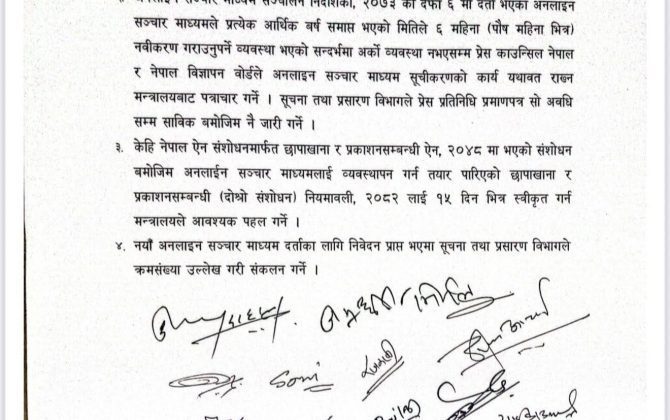 अनलाइन सञ्चार माध्यम सञ्चालन निर्देशिका, २०७३ को दफा ६ मा दर्ता भएका अनलाइन
सञ्चार माध्यमले प्रत्येक आर्थिक बर्ष समाप्त भएको मितिले ६ महिना (पौष महिना भित्र)
नवीकरण गराउनुपर्ने व्यवस्था भएको सन्दर्भमा अर्को व्यवस्था नभएसम्म प्रेस काउन्सिल नेपाल
र नेपाल विज्ञापन वोर्डले अनलाइन सञ्चार माध्यम सूचीकरणको कार्य यथावत राख्न
मन्त्रालयबाट पत्राचार गर्ने । सूचना तथा प्रसारण विभागले प्रेस प्रतिनिधि प्रमाणपत्र सो अवधि
सम्म साविक बमोजिम नै जारी गर्ने ।
३. केहि नेपाल ऐन संशोधनमार्फत छापाखाना र प्रकाशनसम्बन्धी ऐन, २०४८ मा भएको संशोधन
बमोजिम अनलाईन सञ्चार माध्यमलाई व्यवस्थापन गर्न तयार पारिएको छापाखाना र
प्रकाशनसम्बन्धी (दोश्रो संशोधन) नियमावली, २०८२ लाई १५ दिन भित्र स्वीकृत गर्न
मन्त्रालयले आवश्यक पहल गर्ने ।
४. नयाँ अनलाइन सञ्चार माध्यम दर्ताका लागि निवेदन प्राप्त भएमा सूचना तथा प्रसारण विभागले
क्रमसंख्या उल्लेख गरी संकलन गर्ने ।